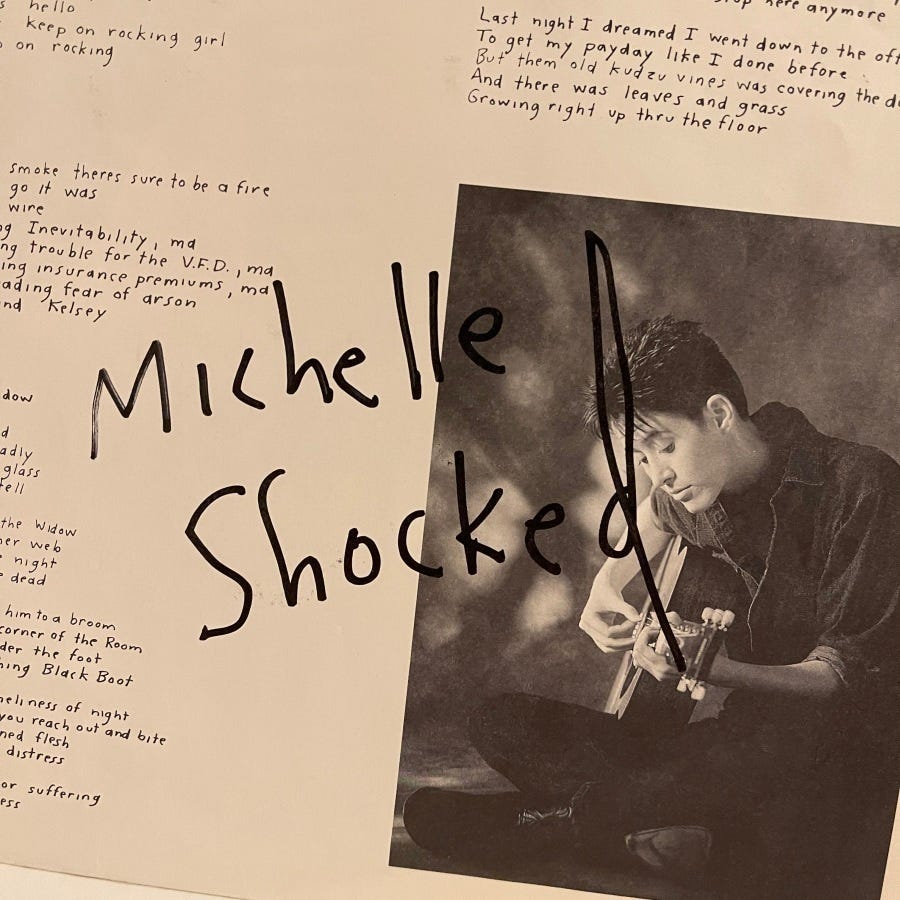 hello
keep on rocking girl
on rocking
here anymore
Last night I dreamed I went down to the
To get my payday like I done before
But them old kudzu vines was covering the
And there was leaves and grass
Growing right up thru the floor
smoke theres sure to be a fire
go it was
wire
Inevitability, ma
trouble for the V.F.D., ma
insurance premiums, ma
fear of arson
Kelsey
Michelle
Shocked
glass
fell
the Widow
web
night
dead
him to a broom
corner of the Room
the foot
Black Boot
of night
you reach out and bite
flesh
distress
or suffering